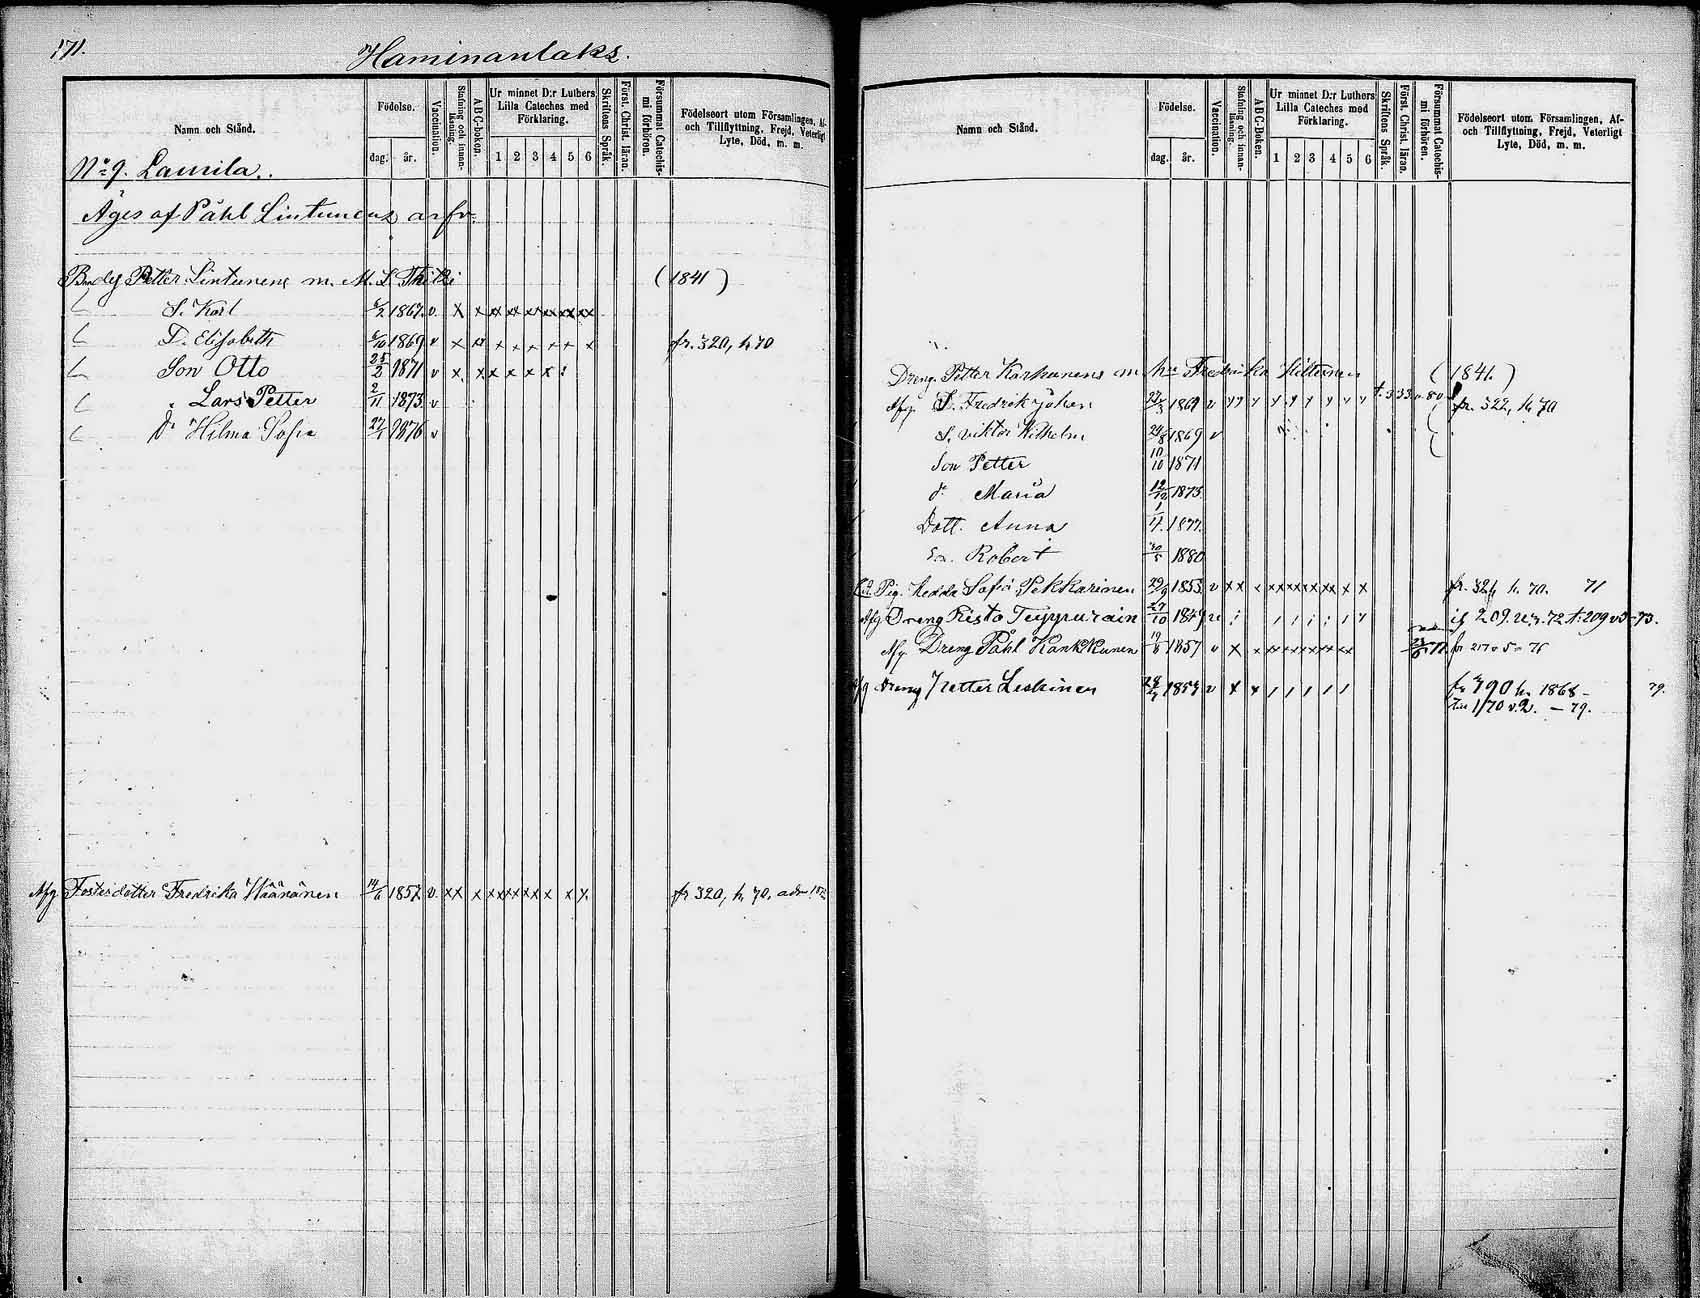 171.
Haminanlaks.
Namn och Stånd.
Födelse.
dag. år.
Vaccination.
Stafning och innan-läsning.
ABC-boken.
Ur minnet D:r Luthers Lilla Cateches med Förklaring.
1 2 3 4 5 6
Skriftens Språk.
Först. Christ. läran.
Försummat Catechis-mi förhören.
Födelseort utom Församlingen, Af- och Tillflyttning, Frejd, Veterligt Lyte, Död, m. m.
No 9. Laurila.
Äges af Påhl Lintunens arfv:
Petter Lintunens m. M. L. (1841)
S. Karl 6/2 1867. v. x x xx xx xx xx xx xx
D. Elisabeth 6/10 1869 v x xx x x x x x x fr. 320, h. 70
Son Otto 25/2 1871 v x. x x x x x
Lars Petter 2/11 1873 v
Dr Hilma Sofia 27/1 1876 v
Afg. Fosterdotter Fredrika Väänänen 14/6 1857 v. xx x xx xx x x x x fr 320, h. 70.
Namn och Stånd.
Födelse.
dag. år.
Vaccination.
Stafning och innan-läsning.
ABC-Boken.
Ur minnet D:r Luthers Lilla Cateches med Förklaring.
1 2 3 4 5 6
Skriftens Språk.
Först. Christ. läran.
Försummat Catechis-mi förhören.
Födelseort utom Församlingen, Af- och Tillflyttning, Frejd, Veterligt Lyte, Död, m. m.
Dreng. Petter Karhunens m Fredrika (1841.)
Afg. S. Fredrik Johan 1869 v fr. 322, h. 70
S. Viktor Vilhelm 24/8 1869 v
Son Petter 10/10 1871
dr. Maria 12/12 1873
Dott. Anna 1877.
Son. Robert 1880
Pig. Hedda Sofia Pekkarinen 29/9 1853 v xx x xx xx xx xx x x h. 70. 71
Afg Dreng Risto Teppurain 27/10 1849
Afg Dreng Påhl Kankkunen 19/8 1857 v x x
Afg Dreng Petter Leskinen v x x / / / / / 190 h. 1868-
1/70 v. 2. - 79.
79.